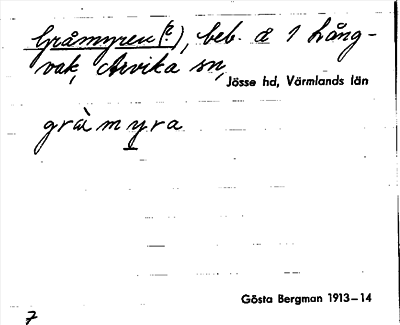 Gråmyren (?), beb. å 1 Lång-
vak, Arvika sn,
Jösse hd, Värmlands län
grå̀myra
Gösta Bergman 1913–14
7